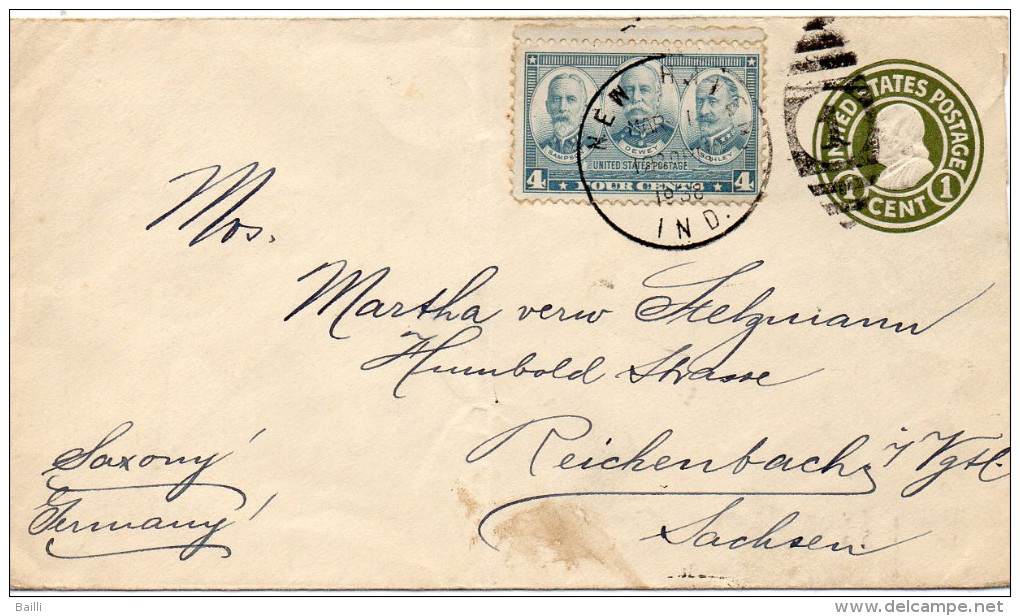 UNITED STATES POSTAGE
1 CENT 1
SAMPSON DEWEY SCHLEY
UNITED STATES POSTAGE
4 FOUR CENTS 4
NEW
MAR 1
1938
IND.
Mrs.
Martha verw Stelzmann
Humbold Strasse
Reichenbach i/Vgtl.
Sachsen.
Saxony
Germany!
Baili
delcampe.net